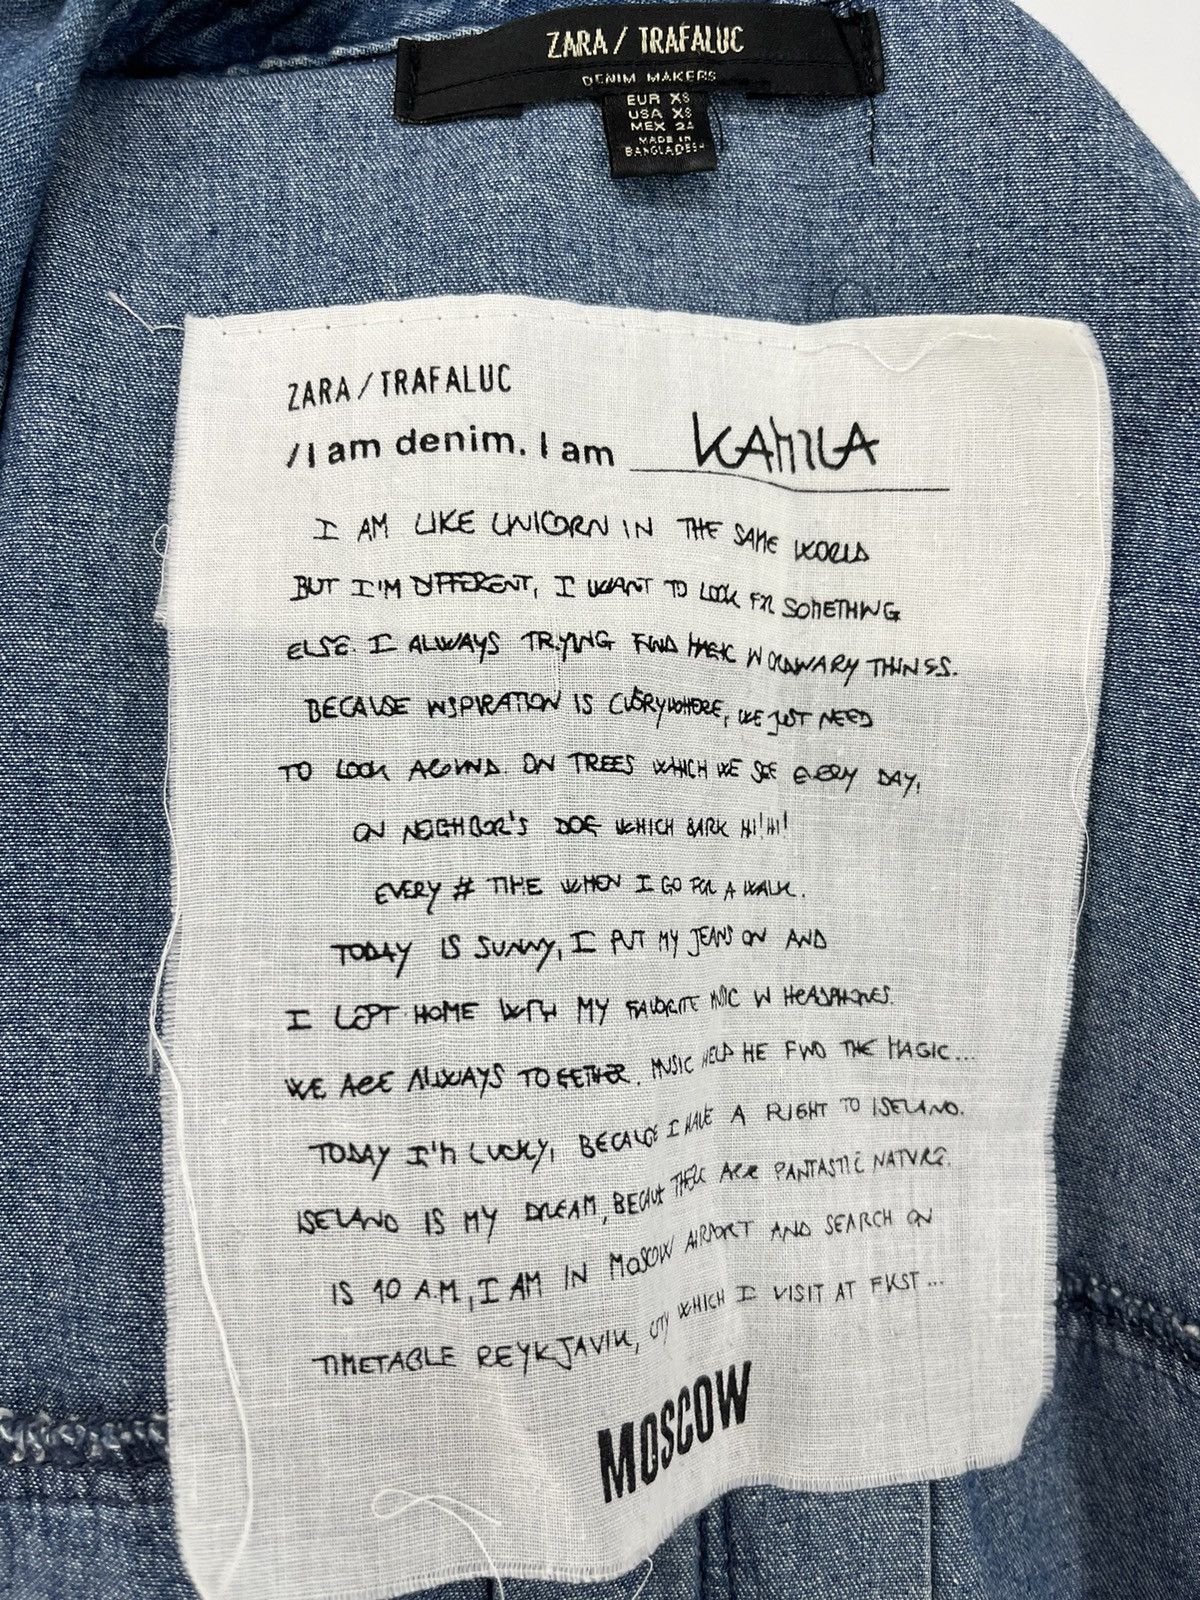 ZARA / TRAFALUC
DENIM MAKERS
EUR XS
USA XS
MEX 24
MADE IN
BANGLADESH
ZARA / TRAFALUC
/ I am denim. I am KAMILA
I AM LIKE UNICORN IN THE SAME WORLD
BUT I'M DIFFERENT, I WANT TO LOOK FOR SOMETHING
ELSE. I ALWAYS TRYING FIND MAGIC IN ORDINARY THINGS.
BECAUSE INSPIRATION IS EVERYWHERE, WE JUST NEED
TO LOOK AROUND. ON TREES WHICH WE SEE EVERY DAY,
ON NEIGHBOR'S DOG WHICH BARK HI! HI!
EVERY # TIME WHEN I GO FOR A WALK.
TODAY IS SUNNY, I PUT MY JEANS ON AND
I LEFT HOME WITH MY FAVORITE MUSIC IN HEADPHONES.
WE ARE ALWAYS TOGETHER. MUSIC HELP ME FIND THE MAGIC...
TODAY I'M LUCKY, BECAUSE I HAVE A RIGHT TO ISELAND.
ISELAND IS MY DREAM, BECAUSE THERE ARE FANTASTIC NATURE.
IS 10 A.M, I AM IN MOSCOW AIRPORT AND SEARCH ON
TIMETABLE REYKJAVIK, CITY WHICH I VISIT AT FIRST...
MOSCOW